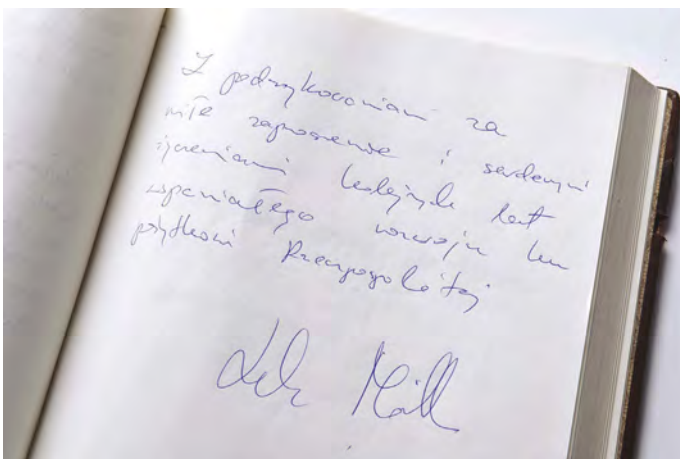 Z podziękowaniem za
miłe zaproszenie i serdecznymi
życzeniami kolejnych lat
wspaniałego rozwoju ku
pożytkowi Rzeczypospolitej